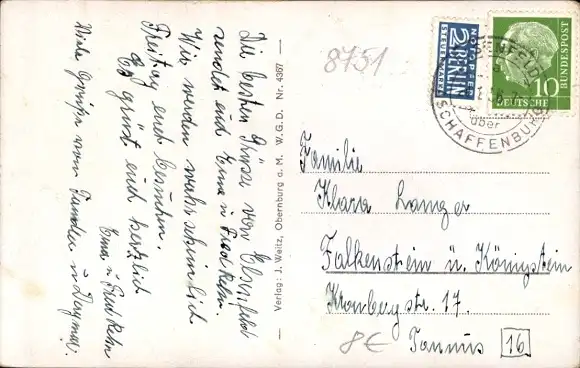 Die besten Grüße von Elsenfeld
sendet euch Erna u. Fred Kehn.
Wir werden wahrscheinlich
Freitag euch besuchen.
Es grüßt euch herzlich
Erna u. Fred Kehn
Viele Grüße von Tanten u. Dagmar.
Verlag: J. Weitz, Obernburg a. M. W.G.D. Nr. 4367
8751
NOTOPFER
2 BERLIN
STEUERMARKE
DEUTSCHE
BUNDESPOST
10
ELSENFELD
über
ASCHAFFENBURG
Familie
Klara Langer
Falkenstein ü. Königstein
Kronbergstr. 17.
Taunus
16
8€